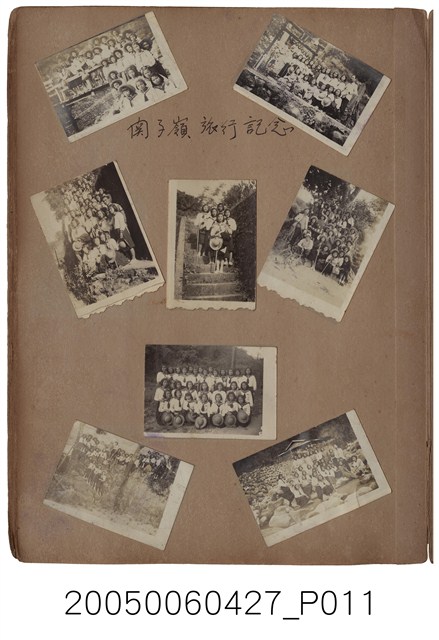 関子嶺旅行記念
20050060427_P011